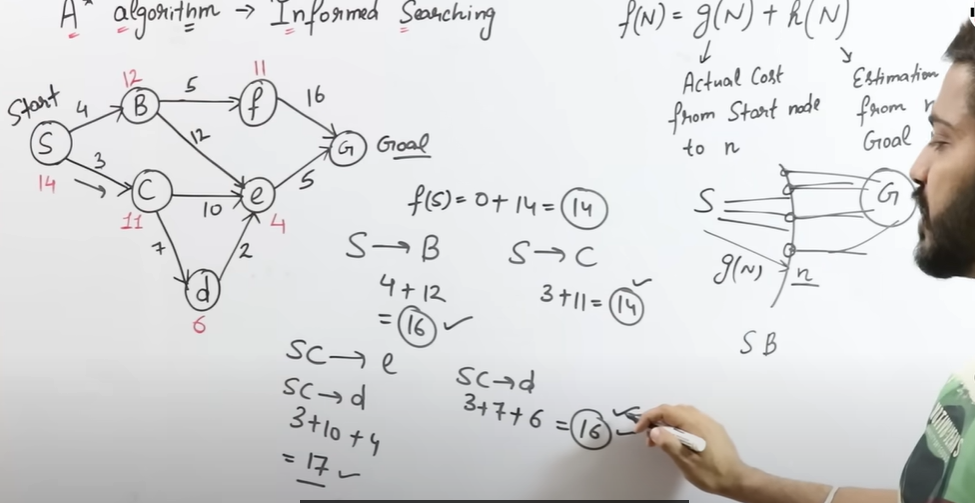 A* algorithm → Informed Searching
f(N) = g(N) + h(N)
Actual Cost
from Start node
to n
Estimation
from
Goal
Start
S
14
4
B
12
5
f
11
16
G
Goal
3
C
11
12
10
e
4
5
7
d
6
2
S
g(N)
n
G
S B
f(S) = 0 + 14 = 14
S → B
4 + 12
= 16 ✓
S → C
3 + 11 = 14 ✓
SC → e
SC → d
3 + 10 + 4
= 17 ✓
SC → d
3 + 7 + 6 = 16